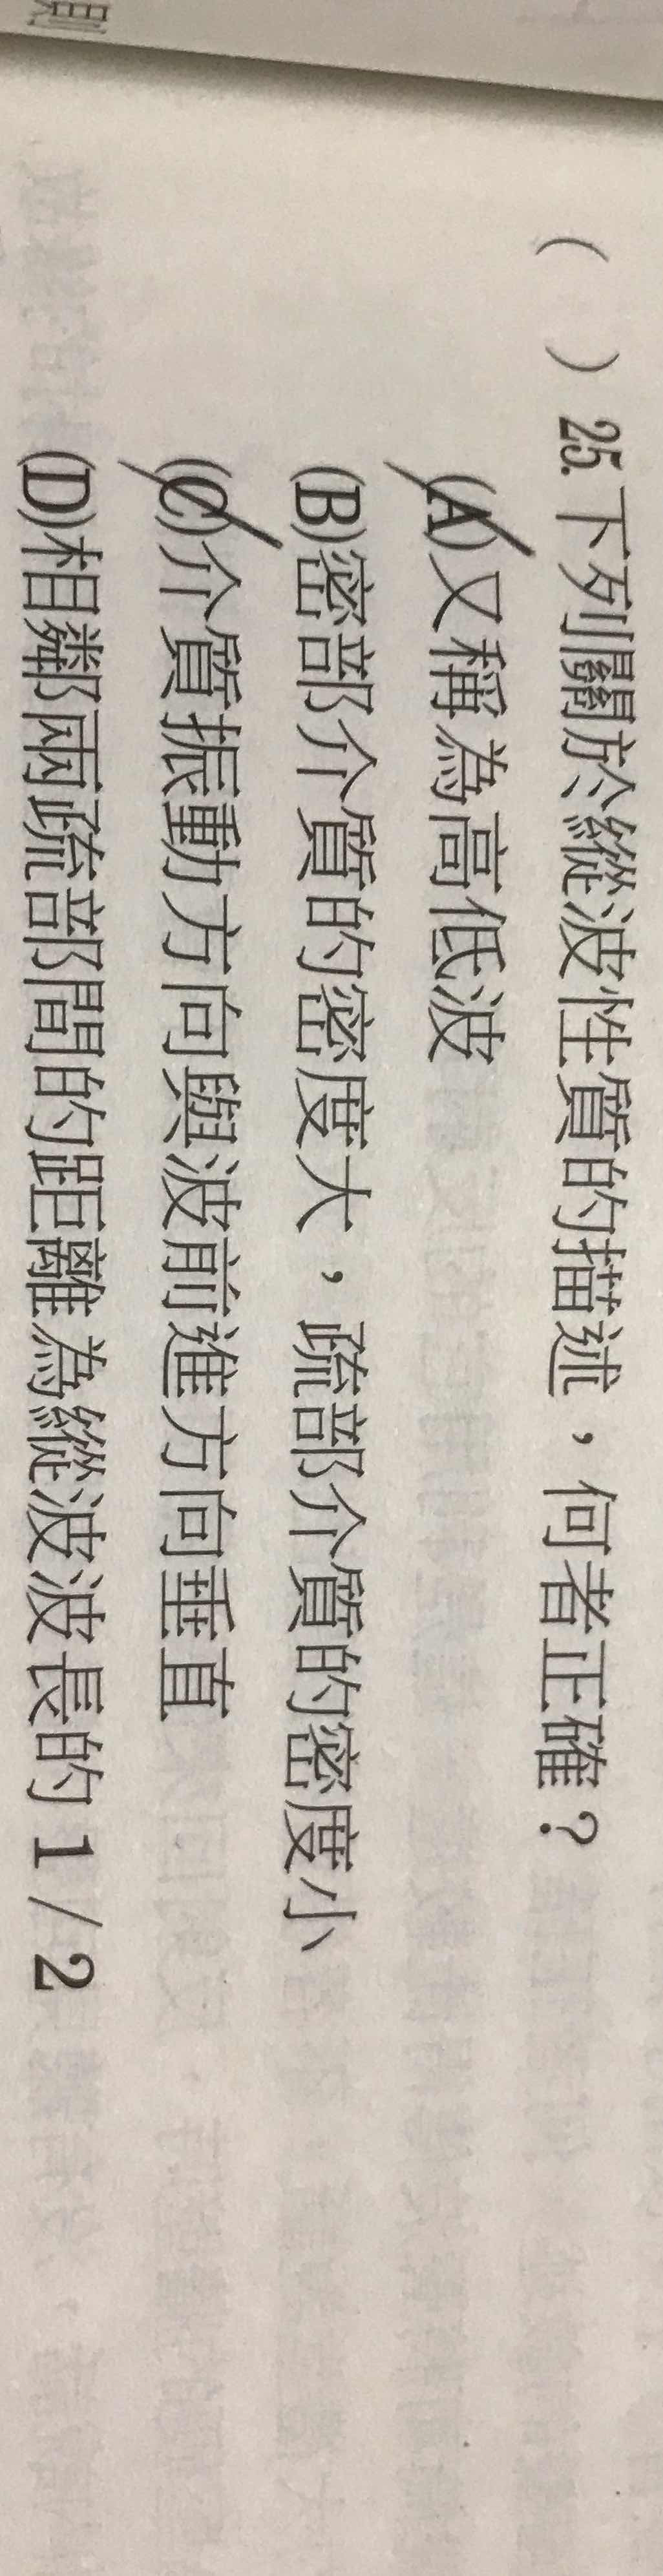 (　) 25. 下列關於縱波性質的描述，何者正確？
(A)又稱為高低波
(B)密部介質的密度大，疏部介質的密度小
(C)介質振動方向與波前進方向垂直
(D)相鄰兩疏部間的距離為縱波波長的 1 / 2